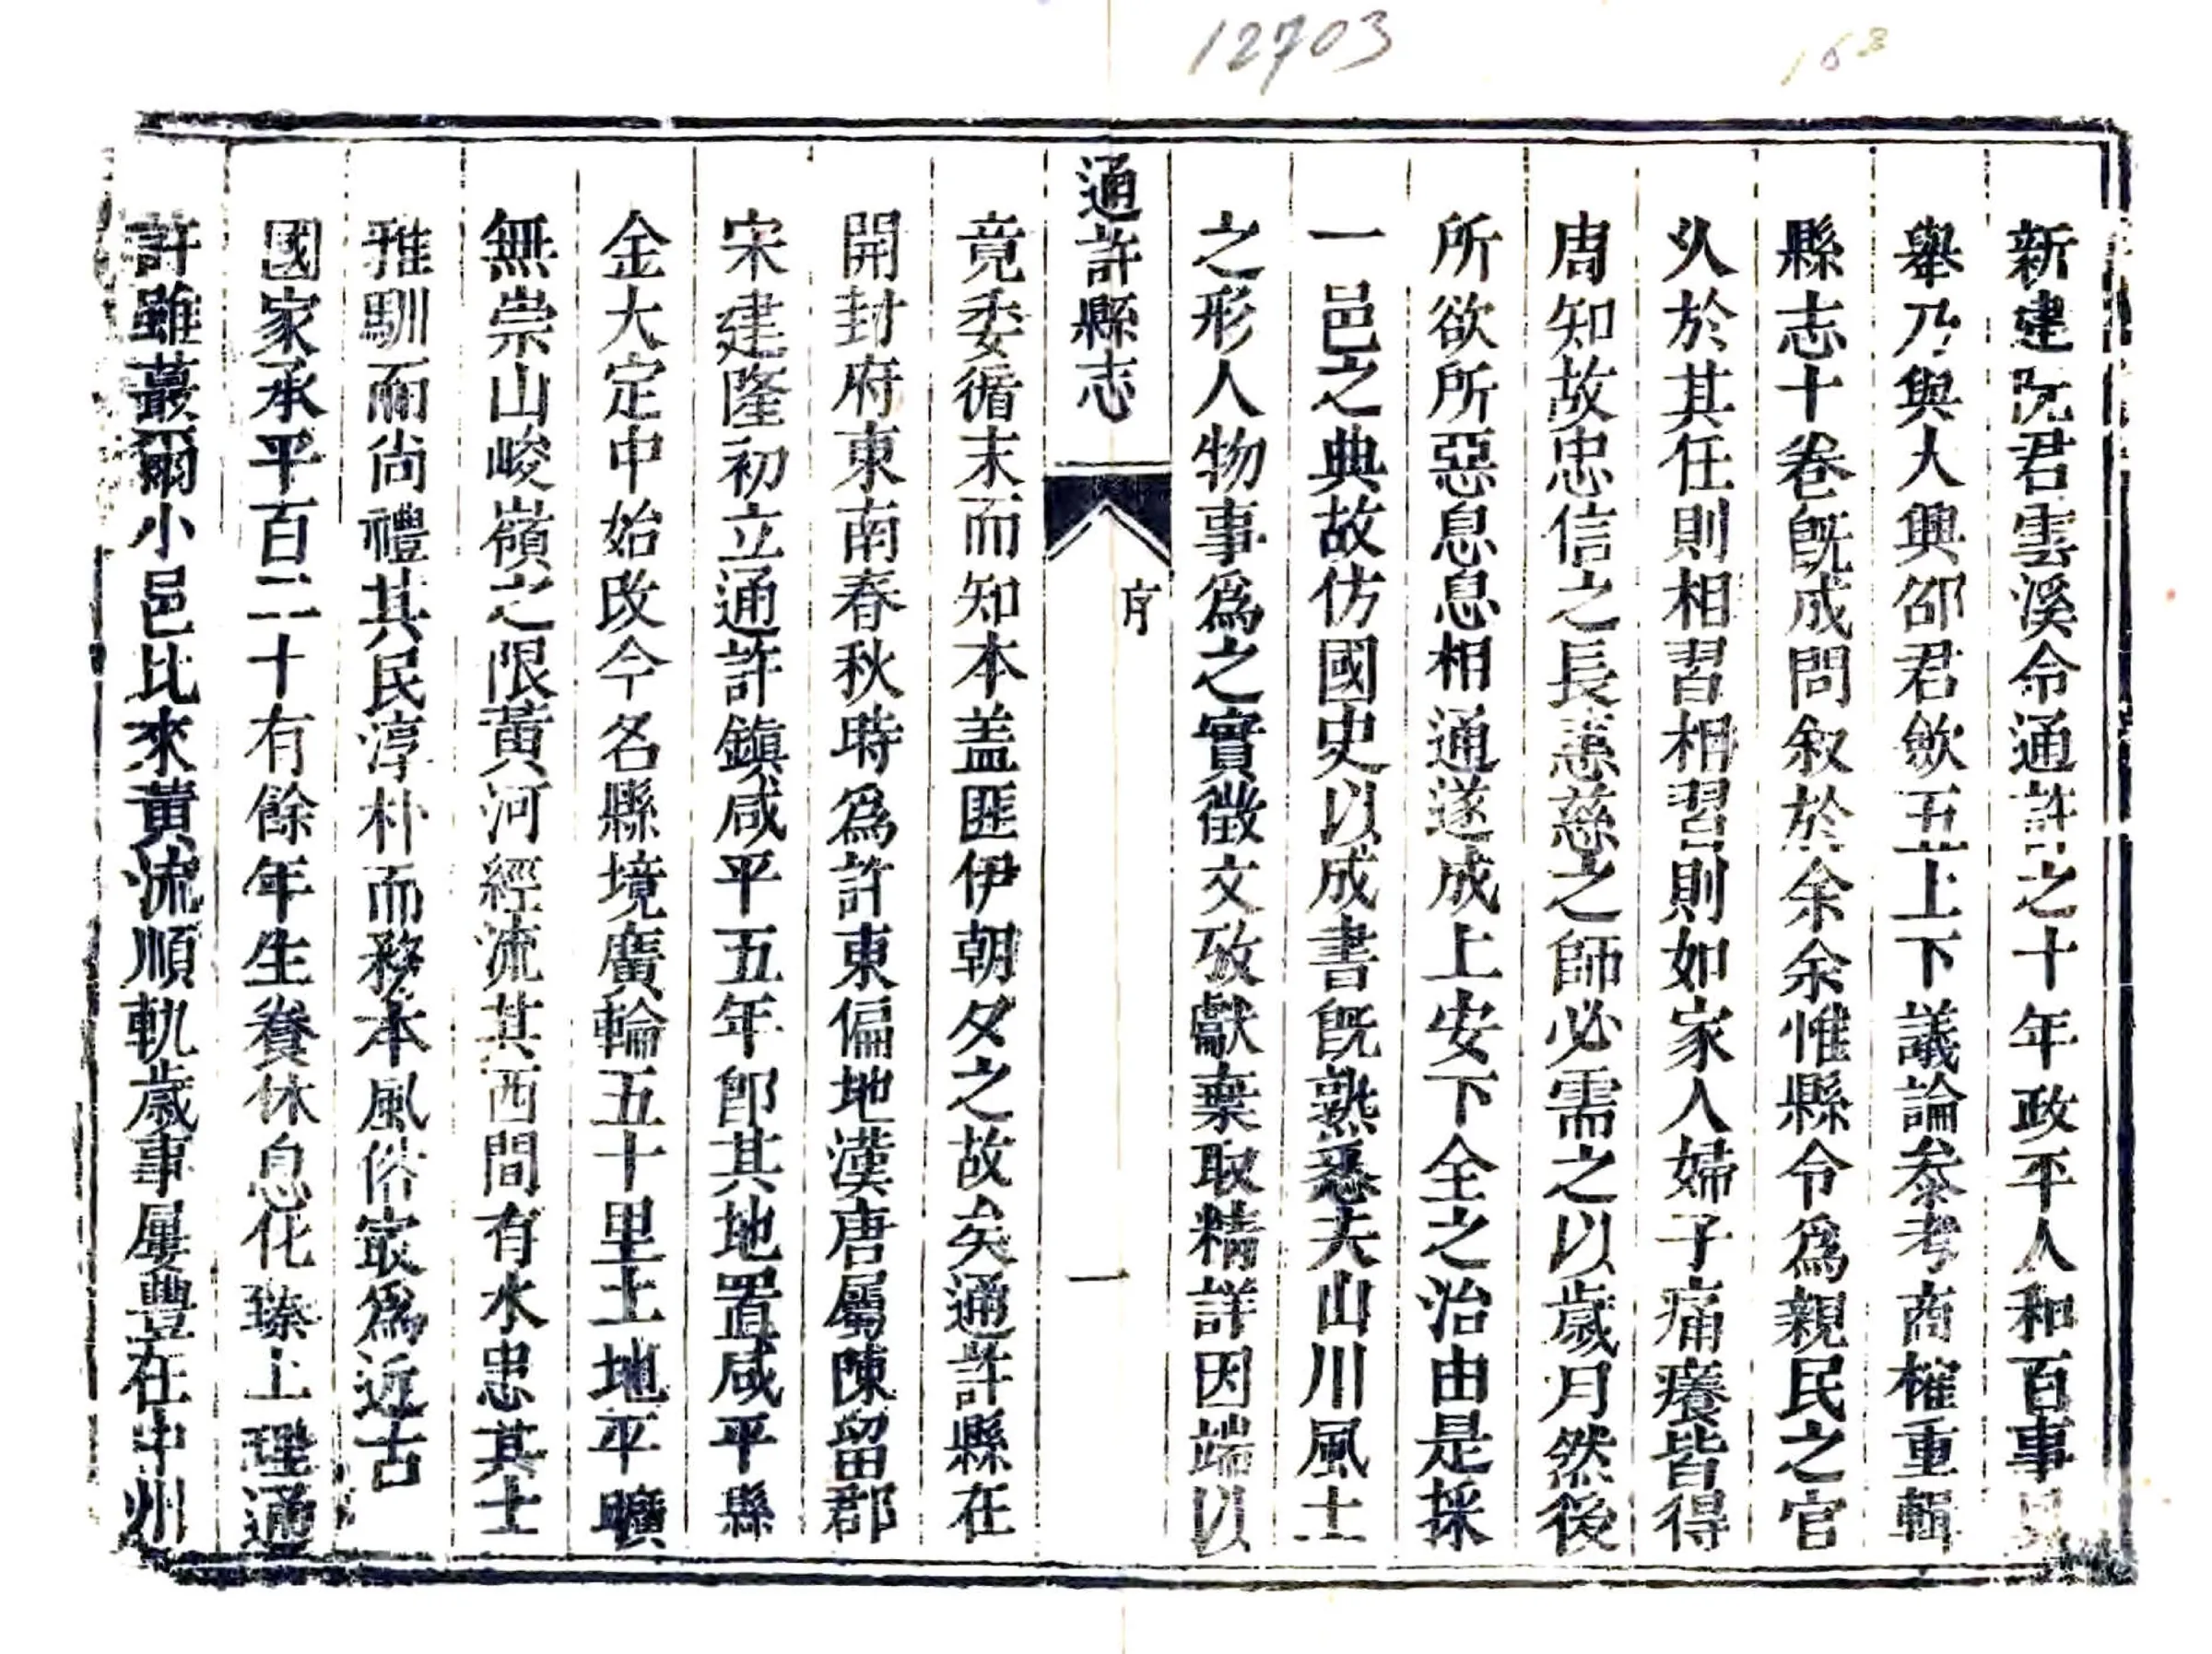 12703
168
新建阮君雲溪令通許之十年政平人和百事具
舉乃與大興邵君歛五上下議論叅考商榷重輯
縣志十卷旣成問叙於余余惟縣令爲親民之官
乆於其任則相習相習則如家人婦子痛癢皆得
周知故忠信之長慈惠之師必需之以歲月然後
所欲所惡息息相通遂成上安下全之治由是採
一邑之典故仿國史以成書旣熟悉夫山川風土
之形人物事爲之實徵文攷獻棄取精詳因端以
通許縣志
序
一
竟委循末而知本盖匪伊朝夕之故矣通許縣在
開封府東南春秋時爲許東偏地漢唐屬陳留郡
宋建隆初立通許鎭咸平五年卽其地置咸平縣
金大定中始改今名縣境廣輪五十里土地平曠
無崇山峻嶺之限黃河經流其西間有水患其士
雅馴而尙禮其民淳朴而務本風俗寂爲近古
國家承平百二十有餘年生養休息化臻上理通
許雖蕞爾小邑比來黃流順軌歲事屢豐在中州